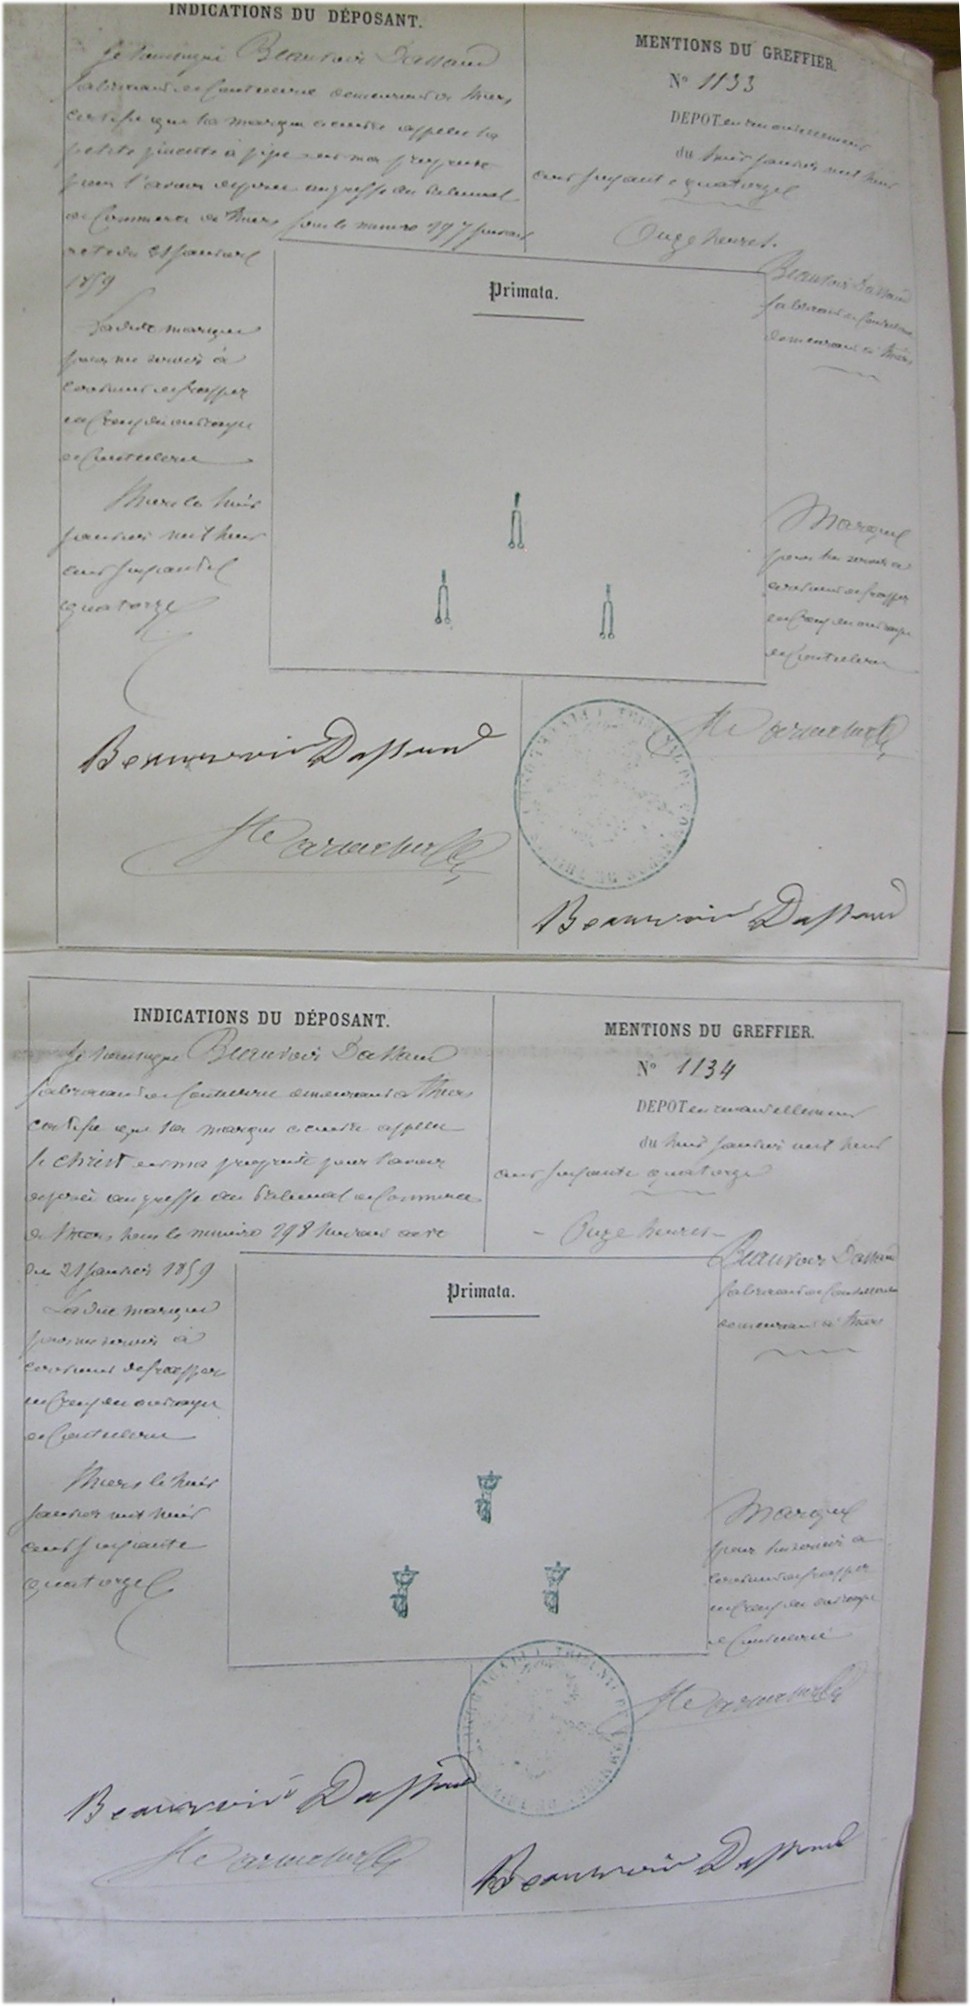 INDICATIONS DU DÉPOSANT.
Je soussigné Beauvoir Dassaud
fabricant de Coutellerie demeurant à Thiers
certifie que la marque ci contre appelée la
petite pincette à pipe est ma propriété
pour l'avoir déposée au greffe du Tribunal
de Commerce de Thiers sous le numéro 297 suivant
acte du 21 Janvier
1859
La dite marque
pour me servir à
continuer de frapper
en creux des ouvrages
de Coutellerie
Thiers le huit
Janvier mil huit
cent soixante
quatorze
MENTIONS DU GREFFIER.
N° 1133
DEPOT en renouvellement
du huit Janvier mil huit
cent soixante quatorze
Onze heures.
Beauvoir Dassaud
fabricant de Coutellerie
demeurant à Thiers
Primata.
Marque
pour lui servir à
continuer de frapper
en creux des ouvrages
de Coutellerie
Beauvoir Dassaud
Beauvoir Dassaud
INDICATIONS DU DÉPOSANT.
Je soussigné Beauvoir Dassaud
fabricant de Coutellerie demeurant à Thiers
certifie que la marque ci contre appelée
le Christ est ma propriété pour l'avoir
déposée au greffe du Tribunal de Commerce
de Thiers sous le numéro 298 suivant acte
du 21 Janvier 1859
La dite marque
pour me servir à
continuer de frapper
en creux des ouvrages
de Coutellerie
Thiers le huit
Janvier mil huit
cent soixante
quatorze
MENTIONS DU GREFFIER.
N° 1134
DEPOT en renouvellement
du huit Janvier mil huit
cent soixante quatorze
Onze heures
Beauvoir Dassaud
fabricant de Coutellerie
demeurant à Thiers
Primata.
Marque
pour lui servir à
continuer de frapper
en creux des ouvrages
de Coutellerie
Beauvoir Dassaud
Beauvoir Dassaud